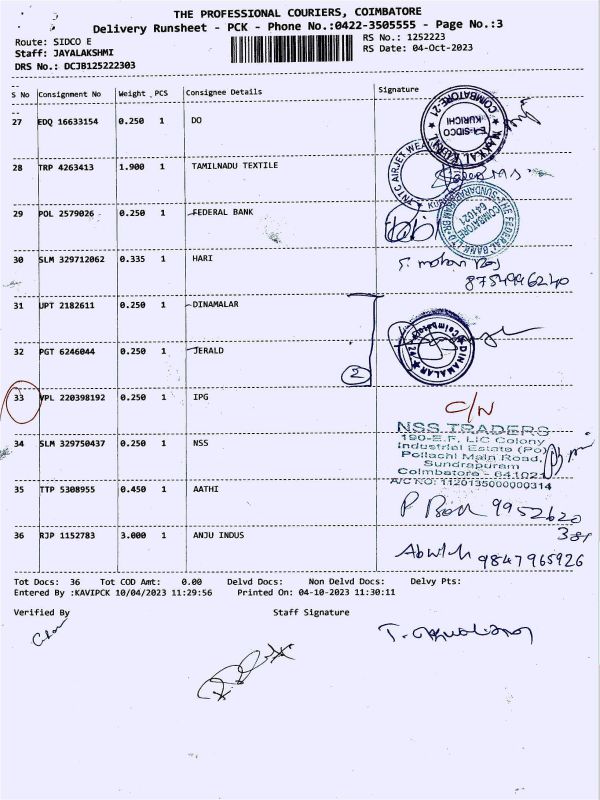 THE PROFESSIONAL COURIERS, COIMBATORE
Delivery Runsheet - PCK - Phone No.:0422-3505555 - Page No.:3
Route: SIDCO E
RS No.: 1252223
Staff: JAYALAKSHMI
RS Date: 04-Oct-2023
DRS No.: DCJB125222303
S No Consignment No Weight PCS Consignee Details Signature
27 EDQ 16633154 0.250 1 DO
COIMBATORE-21
KURICHI
28 TRP 4263413 1.900 1 TAMILNADU TEXTILE
29 POL 2579026 0.250 1 FEDERAL BANK
COIMBATORE
641021
30 SLM 329712062 0.335 1 HARI
S. mohan Raj
8754946240
31 UPT 2182611 0.250 1 DINAMALAR
DINAMALAR
32 PGT 6246044 0.250 1 JERALD
2
33 VPL 220398192 0.250 1 IPG
C/N
34 SLM 329750437 0.250 1 NSS
NSS TRADERS
190-E.F, LIC Colony
Industrial Estate (Po)
Pollachi Main Road,
Sundrapuram
Coimbatore - 641021
A/C NO: 1120135000000314
35 TTP 5308955 0.450 1 AATHI
9952620
381
36 RJP 1152783 3.000 1 ANJU INDUS
9847965926
Tot Docs: 36 Tot COD Amt: 0.00 Delvd Docs: Non Delvd Docs: Delvy Pts:
Entered By :KAVIPCK 10/04/2023 11:29:56 Printed On: 04-10-2023 11:30:11
Verified By Staff Signature